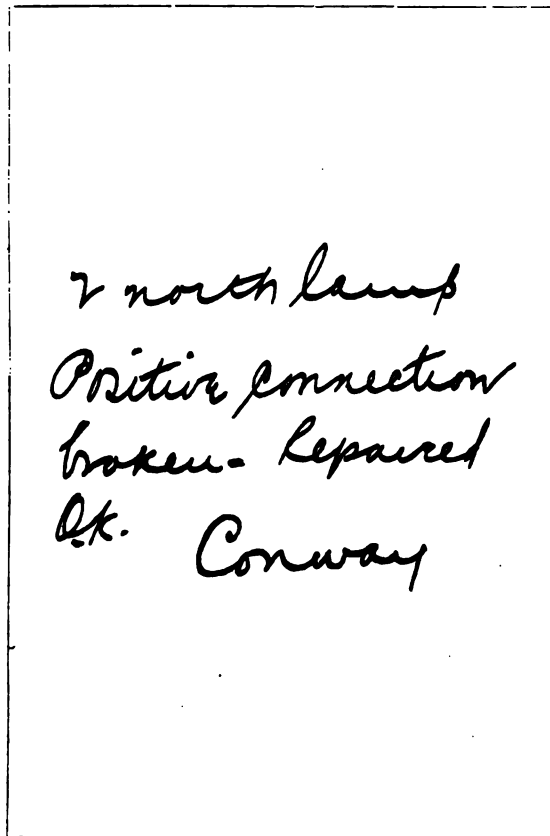 2 north lamp
Positive connection
broken - Repaired
O.K.
Conway